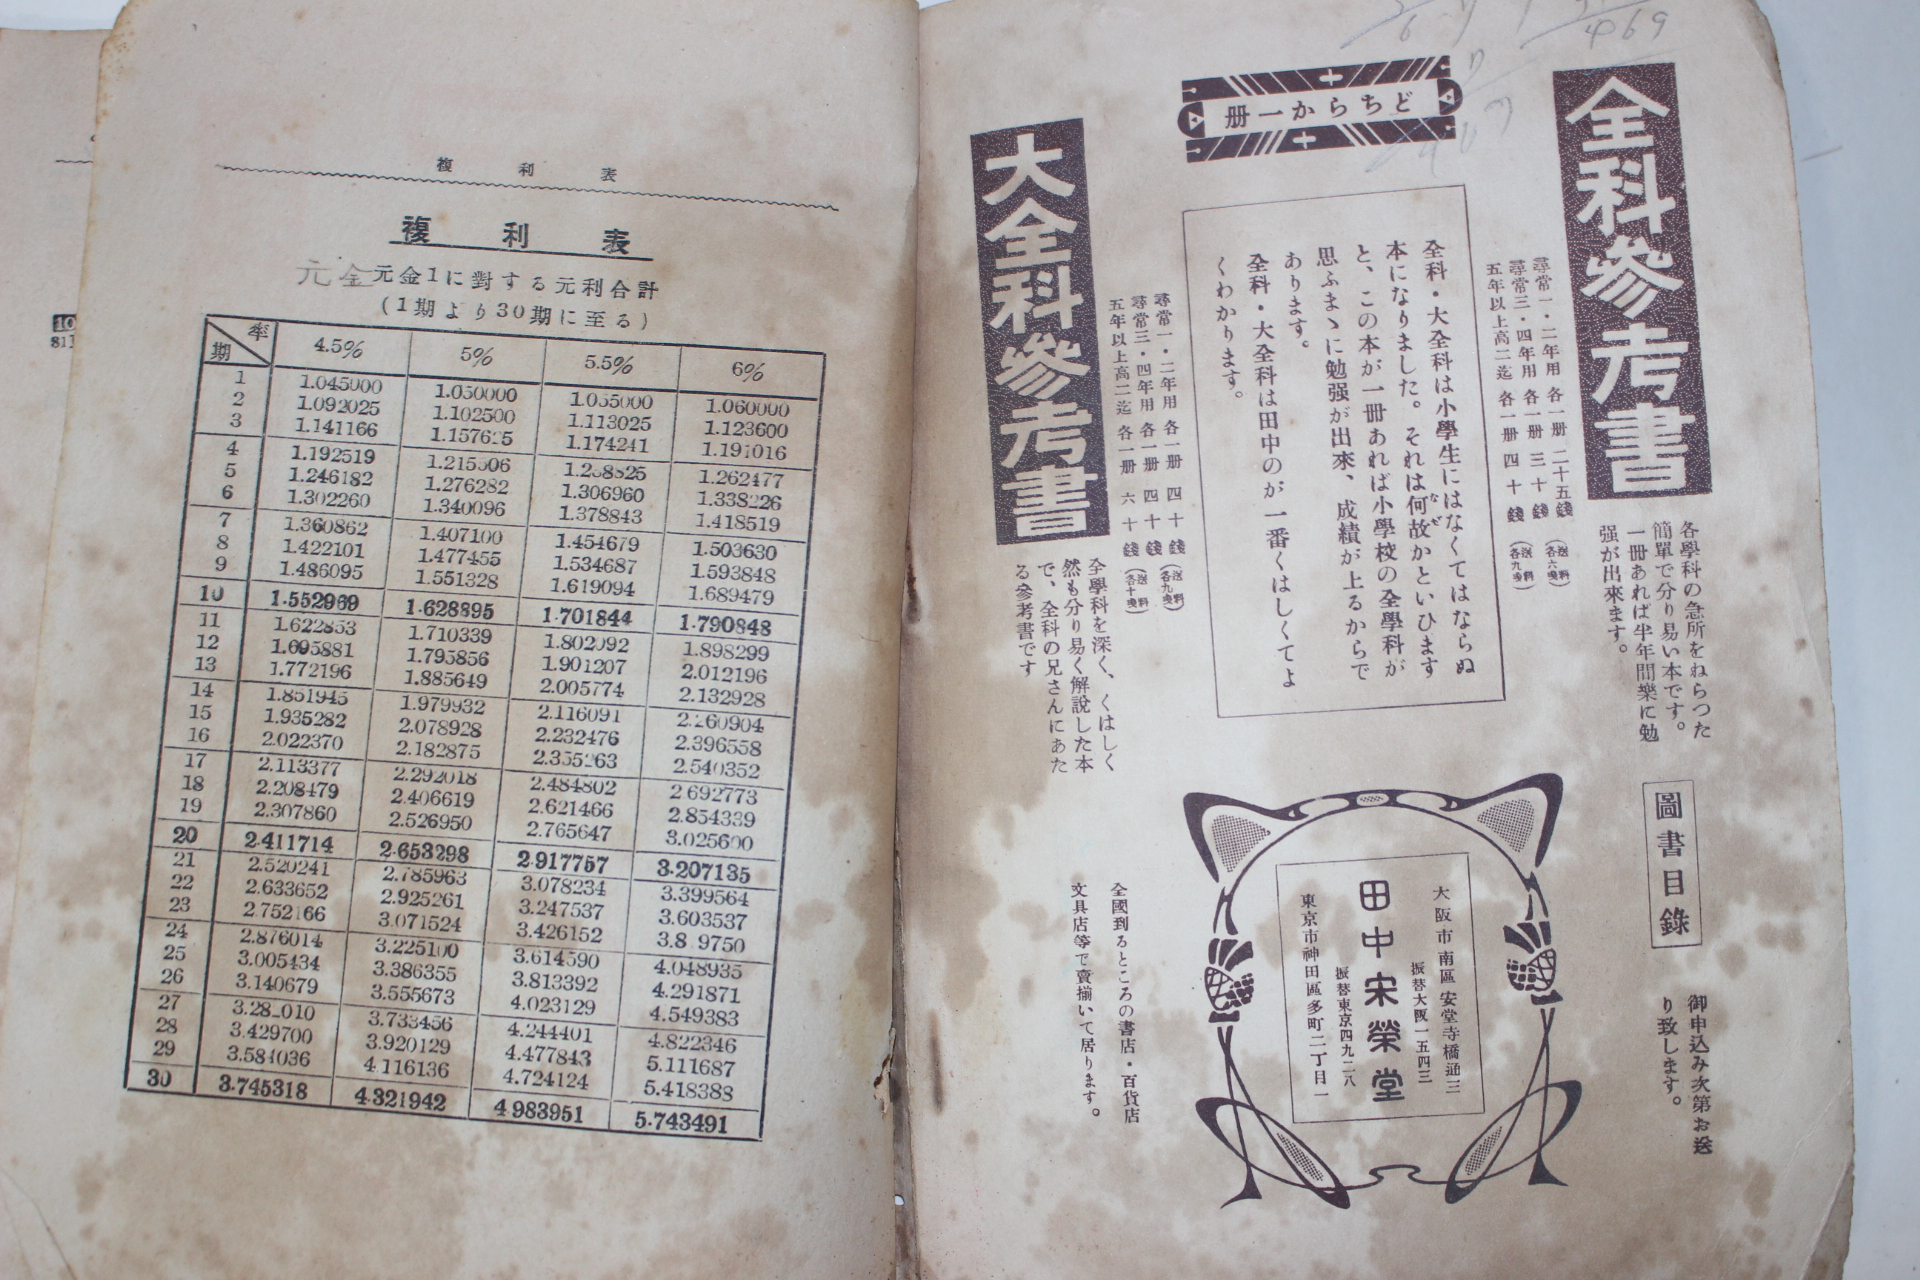 複利表
複利表
元金 元金1に對する元利合計
(1期より30期に至る)
期 率 4.5% 5% 5.5% 6%
1 1.045000 1.050000 1.055000 1.060000
2 1.092025 1.102500 1.113025 1.123600
3 1.141166 1.157625 1.174241 1.191016
4 1.192519 1.215506 1.238825 1.262477
5 1.246182 1.276282 1.306960 1.338226
6 1.302260 1.340096 1.378843 1.418519
7 1.360862 1.407100 1.454679 1.503630
8 1.422101 1.477455 1.534687 1.593848
9 1.486095 1.551328 1.619094 1.689479
10 1.552969 1.628895 1.701844 1.790848
11 1.622853 1.710339 1.802092 1.898299
12 1.695881 1.795856 1.901207 2.012196
13 1.772196 1.885649 2.005774 2.132928
14 1.851945 1.979932 2.116091 2.260904
15 1.935282 2.078928 2.232476 2.396558
16 2.022370 2.182875 2.355263 2.540352
17 2.113377 2.292018 2.484802 2.692773
18 2.208479 2.406619 2.621466 2.854339
19 2.307860 2.526950 2.765647 3.025600
20 2.411714 2.653298 2.917757 3.207135
21 2.520241 2.785963 3.078234 3.399564
22 2.633652 2.925261 3.247537 3.603537
23 2.752166 3.071524 3.426152 3.8 9750
24 2.876014 3.225100 3.614590 4.048935
25 3.005434 3.386355 3.813392 4.291871
26 3.140679 3.555673 4.023129 4.549383
27 3.28 010 3.733456 4.244401 4.822346
28 3.429700 3.920129 4.477843 5.111687
29 3.584036 4.116136 4.724124 5.418388
30 3.745318 4.321942 4.983951 5.743491
全科參考書
尋常一・二年用 各一册 二十五錢 (送料各六錢)
尋常三・四年用 各一册 三十錢
五年以上高二迄 各一册 四十錢 (送料各九錢)
各學科の急所をねらつた
簡單で分り易い本です。
一冊あれば半年間樂に勉
强が出來ます。
どちらか一册
全科・大全科は小學生にはなくてはならぬ
本になりました。それは何故かといひます
なぜ
と、この本が一冊あれば小學校の全學科が
思ふまゝに勉强が出來、成績が上るからで
あります。
全科・大全科は田中のが一番くはしくてよ
くわかります。
大全科參考書
尋常一・二年用 各一册 四十錢 (送料各九錢)
尋常三・四年用 各一册 四十錢
五年以上高二迄 各一册 六十錢 (送料各十錢)
全學科を深く、くはしく
然も分り易く解說した本
で、全科の兄さんにあた
る參考書です
圖書目錄
御申込み次第お送
り致します。
大阪市南區安堂寺橋通三
振替大阪一五四三
田中宋榮堂
振替東京四九二八
東京市神田區多町二丁目一
全國到るところの書店・百貨店
文具店等で賣揃いて居ります。
469